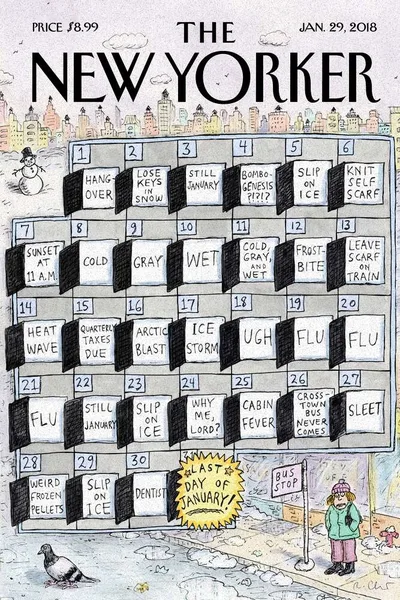 PRICE $8.99
THE
JAN. 29, 2018
NEW YORKER
1
2
3
4
5
6
HANG-
OVER
LOSE
KEYS
IN
SNOW
STILL
JANUARY
BOMBO-
GENESIS
?!?!?
SLIP
ON
ICE
KNIT
SELF
SCARF
7
8
9
10
11
12
13
SUNSET
AT
11 A.M.
COLD
GRAY
WET
COLD,
GRAY,
AND
WET
FROST-
BITE
LEAVE
SCARF
ON
TRAIN
14
15
16
17
18
19
20
HEAT
WAVE
QUARTERLY
TAXES
DUE
ARCTIC
BLAST
ICE
STORM
UGH
FLU
FLU
21
22
23
24
25
26
27
FLU
STILL
JANUARY
SLIP
ON
ICE
WHY
ME,
LORD?
CABIN
FEVER
CROSS-
TOWN
BUS
NEVER
COMES
SLEET
28
29
30
WEIRD
FROZEN
PELLETS
SLIP
ON
ICE
DENTIST
LAST
DAY OF
JANUARY!
BUS
STOP
R. Chast